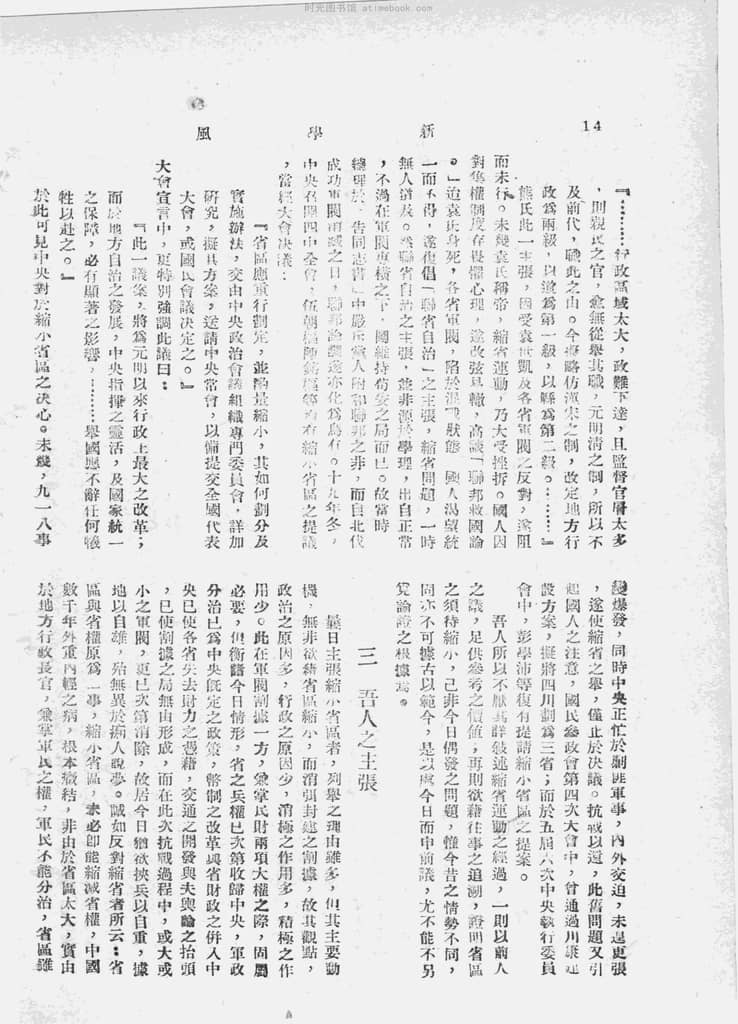 时光图书馆 atimebook.com
14
新學風
『………行政區域太大，政難下達，且監督官層太多
，則親民之官，愈無從舉其職，元明清之制，所以不
及前代，職此之由。今擬略仿漢宋之制，改定地方行
政爲兩級，以道爲第一級，以縣爲第二級。………』
熊氏此一主張，因受袁世凱及各省軍閥之反對，遂阻
而未行。未幾袁氏稱帝，縮省運動，乃大受挫折。國人因
對集權制度存畏懼心理，遂改弦易轍，高談「聯邦救國論
。」迨袁氏身死，各省軍閥，陷於混戰狀態，國人渴望統
一而不得，遂復倡「聯省自治」之主張，縮省問題，一時
無人道及。然聯省自治之主張，並非源於學理，出自正常
，不過在軍閥專橫之下，圖維持苟安之局而已。故當時
總理於「告同志書」中嚴斥黨人附和聯邦之非，而自北伐
成功軍閥消滅之日，聯邦論調遂亦化爲烏有。十九年冬，
中央召開四中全會，伍朝樞陳銘樞等均有縮小省區之提議
，當經大會決議：
『省區應重行劃定，並酌量縮小，其如何劃分及
實施辦法，交由中央政治會議組織專門委員會，詳加
研究，擬具方案，送請中央常會，以備提交全國代表
大會，或國民會議決定之。』
大會宣言中，更特別強調此議曰：
『此一議案，將爲元明以來行政上最大之改革；
而於地方自治之發展，中央指揮之靈活，及國家統一
之保障，必有顯著之影響，………舉國應不辭任何犧
牲以赴之。』
於此可見中央對於縮小省區之決心。未幾，九一八事
變爆發，同時中央正忙於剿匪軍事，內外交迫，未遑更張
，遂使縮省之舉，僅止於決議。抗戰以還，此舊問題又引
起國人之注意，國民參政會第四次大會中，曾通過川康建
設方案，擬將四川劃爲三省；而於五屆六次中央執行委員
會中，彭學沛等復有提請縮小省區之提案。
吾人所以不厭其詳敍述縮省運動之經過，一則以前人
之議，足供參考之價值；再則欲藉往事之追溯，證明省區
之須待縮小，己非今日偶發之問題，惟今昔之情勢不同，
固亦不可據古以範今，是以處今日而申前議，尤不能不另
覓論證之根據焉。
三　吾人之主張
曩日主張縮小省區者，列舉之理由雖多，但其主要動
機，無非欲藉省區縮小，而消弭封建之割據，故其觀點，
政治之原因多，行政之原因少，消極之作用多，積極之作
用少。此在軍閥割據一方，兼掌民財兩項大權之際，固屬
必要，但衡諸今日情形，省之兵權已次第收歸中央，軍政
分治已爲中央既定之政策，幣制之改革與省財政之併入中
央已使各省失去財力之憑藉，交通之開發與夫輿論之抬頭
，已使割據之局無由形成，而在此次抗戰過程中，或大或
小之軍閥，更已次第消除，故居今日猶欲挾兵以自重，據
地以自雄，殆無異於痴人說夢。誠如反對縮省者所云：省
區與省權原爲二事，縮小省區，未必卽能縮減省權，中國
數千年外重內輕之病，根本癥結，非由於省區太大，實由
於地方行政長官，兼掌軍民之權，軍民不能分治，省區雖